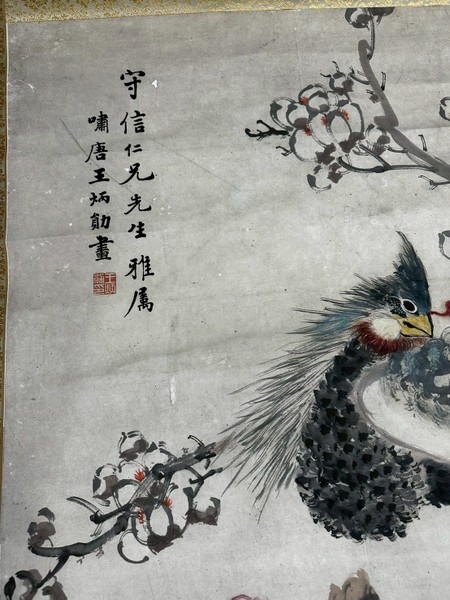 守信仁兄先生雅属
啸唐王炳勋畫